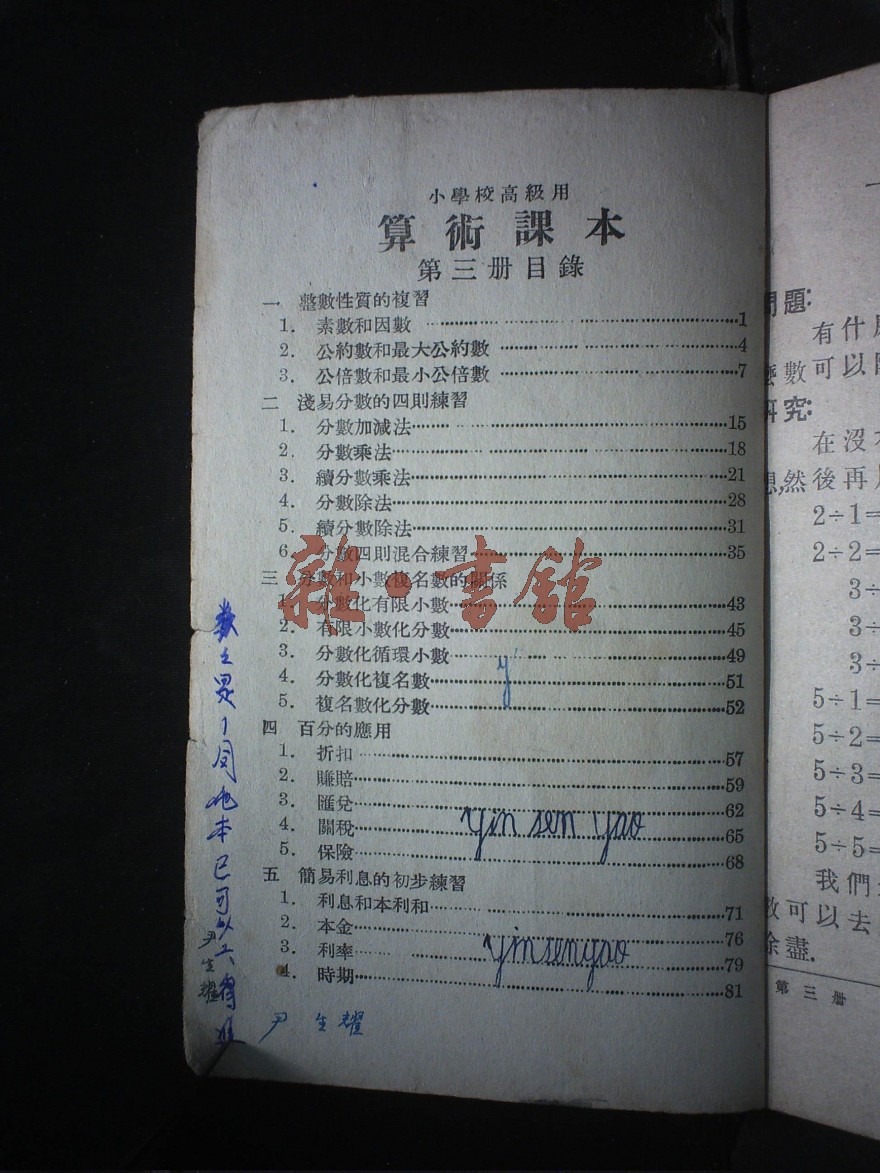 小學校高級用
算術課本
第三册目錄
一 整數性質的複習
1. 素數和因數 1
2. 公約數和最大公約數 4
3. 公倍數和最小公倍數 7
二 淺易分數的四則練習
1. 分數加減法 15
2. 分數乘法 18
3. 續分數乘法 21
4. 分數除法 28
5. 續分數除法 31
6. 分數四則混合練習 35
三 分數和小數複名數的關係
1. 分數化有限小數 43
2. 有限小數化分數 45
3. 分數化循環小數 49
4. 分數化複名數 51
5. 複名數化分數 52
四 百分的應用
1. 折扣 57
2. 賺賠 59
3. 匯兌 62
4. 關稅 65
5. 保險 68
五 簡易利息的初步練習
1. 利息和本利和 71
2. 本金 76
3. 利率 79
4. 時期 81
y
yin sen yao
yinsenyao
尹生耀
尹生耀
雜·書館
問題:
有什
麼數可以
研究:
在沒
想,然後再
2÷1=
2÷2=
3÷
3÷
3÷
5÷1=
5÷2=
5÷3=
5÷4=
5÷5=
我們
數可以去
除盡.
第三册